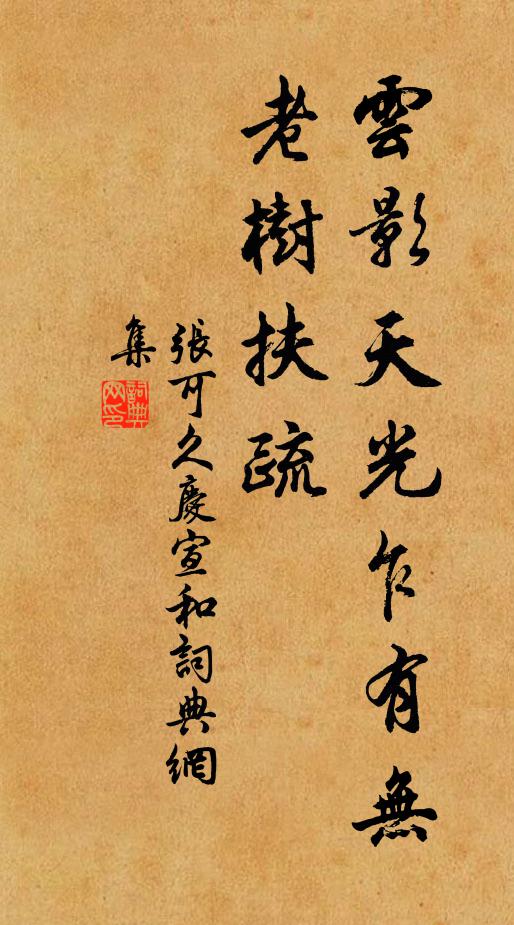 雲影天光乍有無
老樹扶疏
張可久慶宣和詞典網
集
詞典
网印